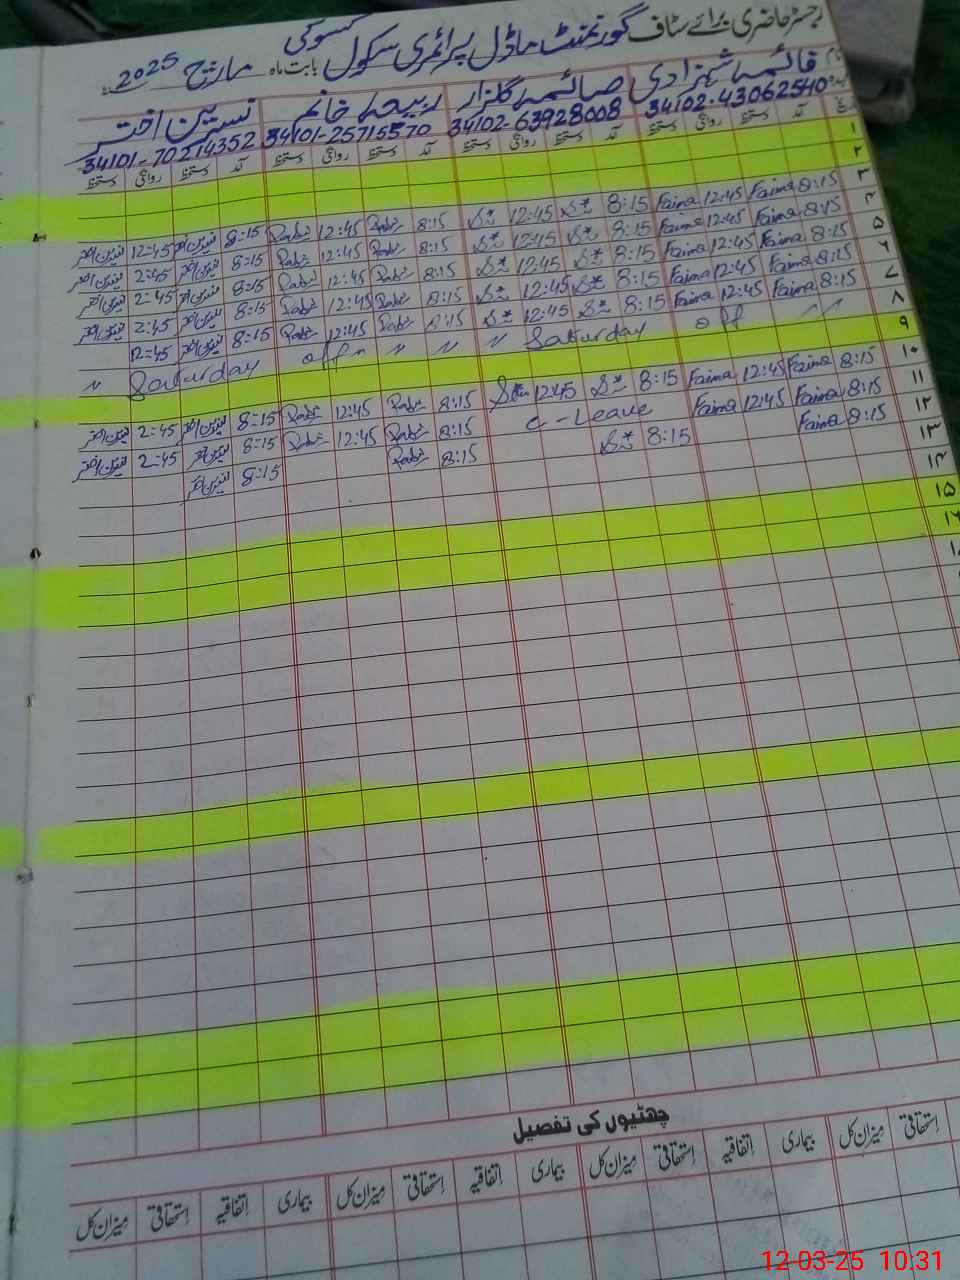 رجسٹر حاضری برائے سٹاف گورنمنٹ ماڈل پرائمری سکول کسوکی بابت ماہ مارچ 2025
فائمہ شہزادی صائمہ گلزار ربیعہ خانم نسرین اختر
34102-43062540 34102-63928008 34101-25715570 34101-70214352
آمد دستخط روانگی دستخط آمد دستخط روانگی دستخط آمد دستخط روانگی دستخط آمد دستخط روانگی دستخط
۱
۲
۳ 8:15 Faima 12:45 Faima 8:15 12:45 8:15 12:45 8:15 نسرین اختر 12:45 نسرین اختر
۴ 8:15 Faima 12:45 Faima 8:15 12:45 8:15 12:45 8:15 نسرین اختر 2:45 نسرین اختر
۵ 8:15 Faima 12:45 Faima 8:15 12:45 8:15 12:45 8:15 نسرین اختر 2:45 نسرین اختر
۶ 8:15 Faima 12:45 Faima 8:15 12:45 8:15 12:45 8:15 نسرین اختر 2:45 نسرین اختر
۷ 8:15 Faima 12:45 Faima 8:15 12:45 8:15 12:45 8:15 نسرین اختر 12:45
۸ " Saturday off " " " Saturday off "
۹
۱۰ 8:15 Faima 12:45 Faima 8:15 12:45 8:15 12:45 8:15 نسرین اختر 2:45 نسرین اختر
۱۱ 8:15 Faima 12:45 Faima C-Leave 8:15 12:45 8:15 نسرین اختر 2:45 نسرین اختر
۱۲ 8:15 Faima 8:15 8:15 8:15 نسرین اختر
۱۳
۱۴
۱۵
۱۶
چھٹیوں کی تفصیل
استحقاقی میزان کل بیماری اتفاقیہ استحقاقی میزان کل بیماری اتفاقیہ استحقاقی میزان کل بیماری اتفاقیہ استحقاقی میزان کل
12-03-25 10:31